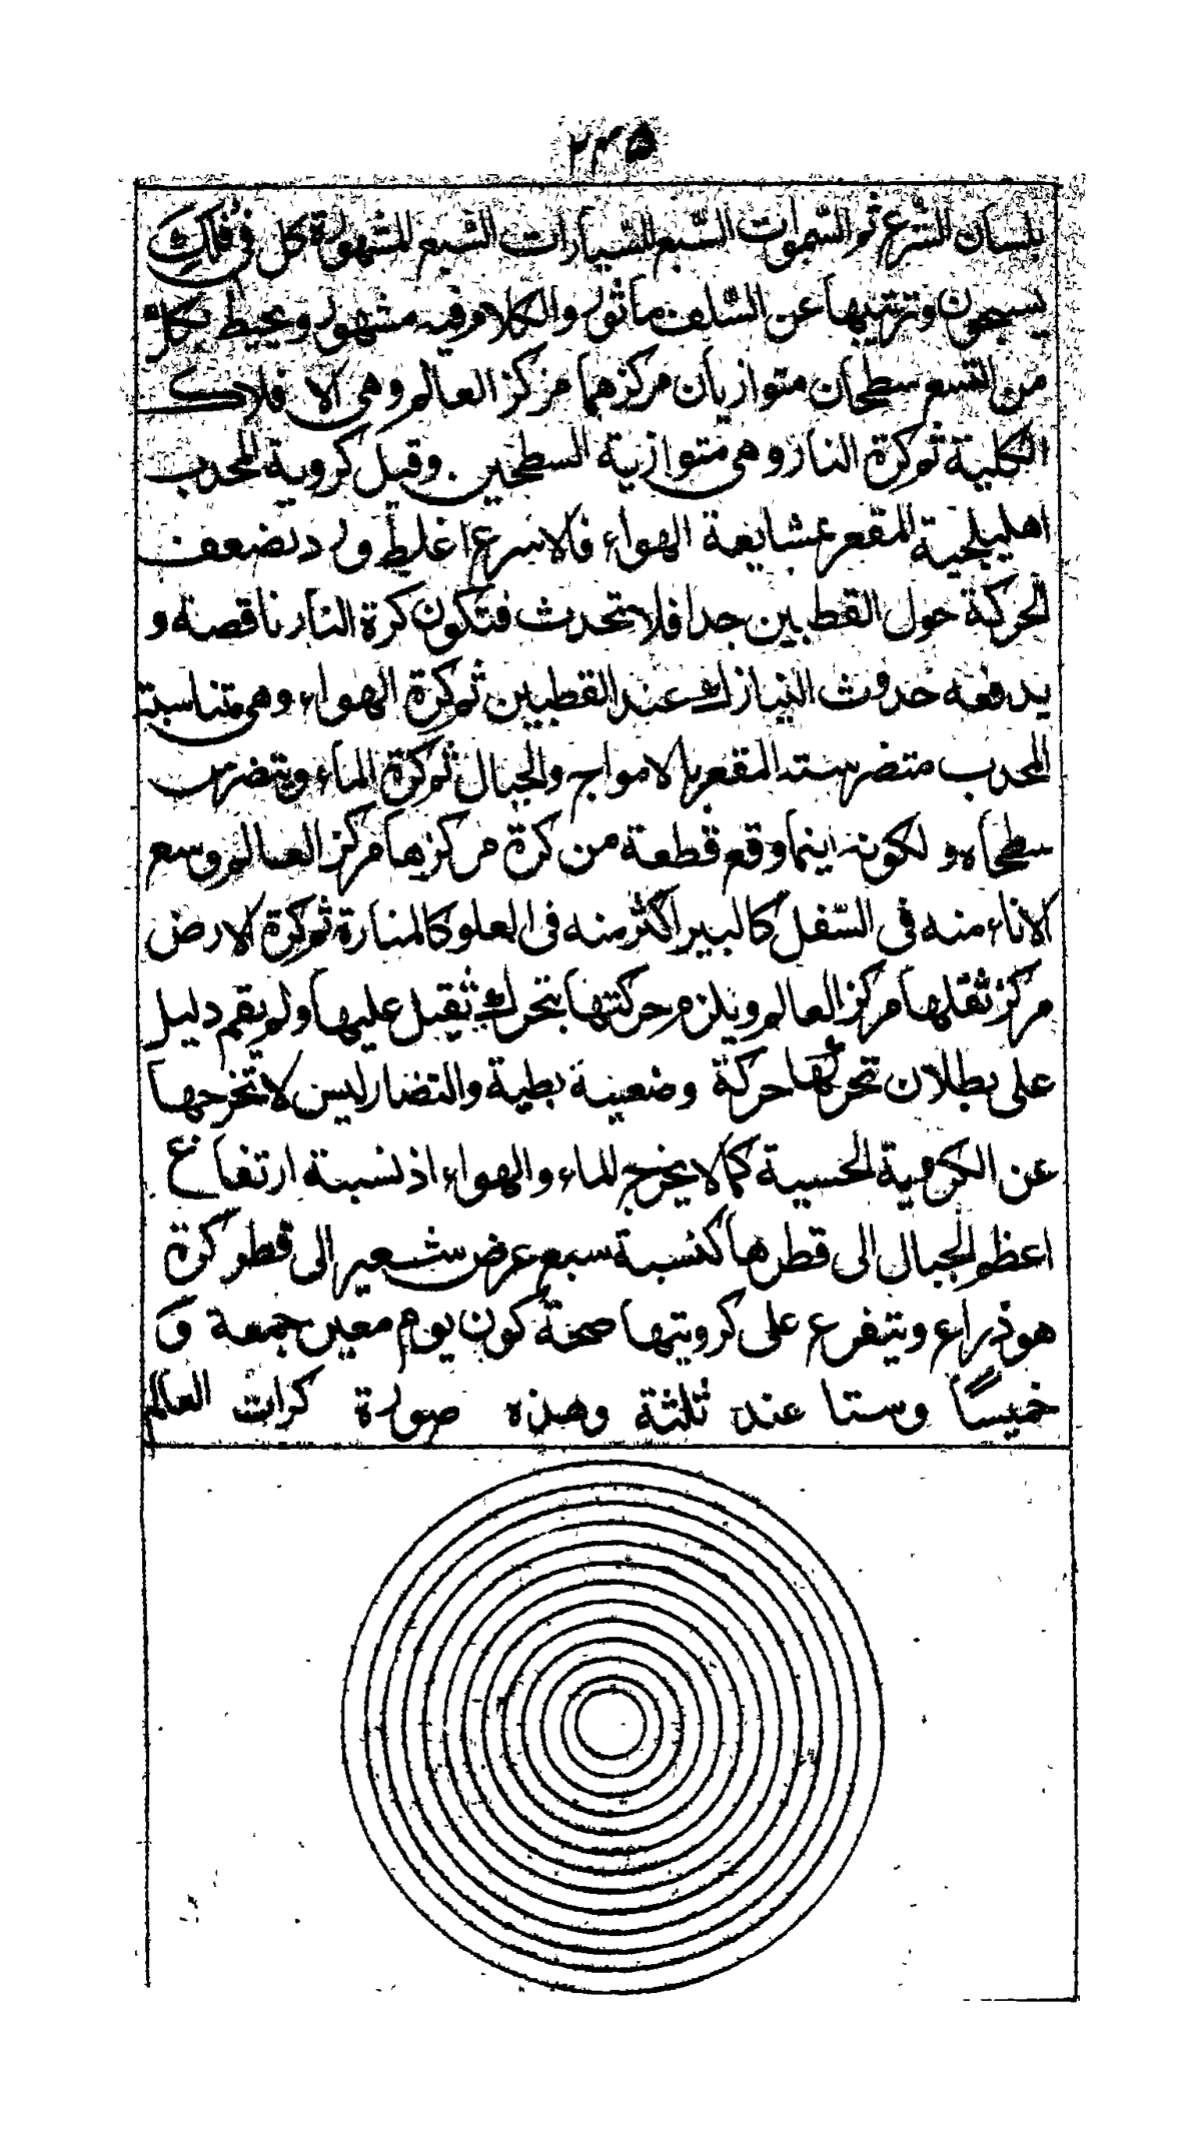 ٢٣٥
بلسان الشرع ثم السموات السبع للسيارات السبع المشهورة كل فى فلك
يسبحون وترتيبها عن السلف مأثور والكلام فيه مشهور ويحيط بكل
من التسع سطحان متوازيان مركزهما مركز العالم وهى الافلاك
الكلية ثم كرة النار وهى متوازية السطحين وقيل كروية المحدب
اهليلجية المقعر بمشايعة الهواء فالاسرع اغلظ ورد تضعف
الحركة حول القطبين جدا فلا تحدث فتكون كرة النار ناقصة و
يدفعه حدوث النيازك عند القطبين ثم كرة الهواء وهى متناسبة
المحدب متضرسته المقعر بالامواج والجبال ثم كرة الماء ويتضرس
سطحاه ولكونه اينما وقع قطعة من كرة مركزها مركز العالم وسع
الاناء منه فى السفل كالبير اكثر منه فى العلو كالمنارة ثم كرة الارض
مركز ثقلها مركز العالم ويلزم حركتها بتحرك ثقيل عليها ولم يقم دليل
على بطلان تحركها حركة وضعية بطية والتضاريس لا تخرجها
عن الكروية الحسية كما لا يخرج الماء والهواء اذ نسبة ارتفاع
اعظم الجبال الى قطرها كنسبة سبع عرض شعير الى قطر كرة
هو ذراع ويتفرع على كرويتها صحة كون يوم معين جمعة و
خميساً وستا عند ثلثة وهذه صورة كرات العالم